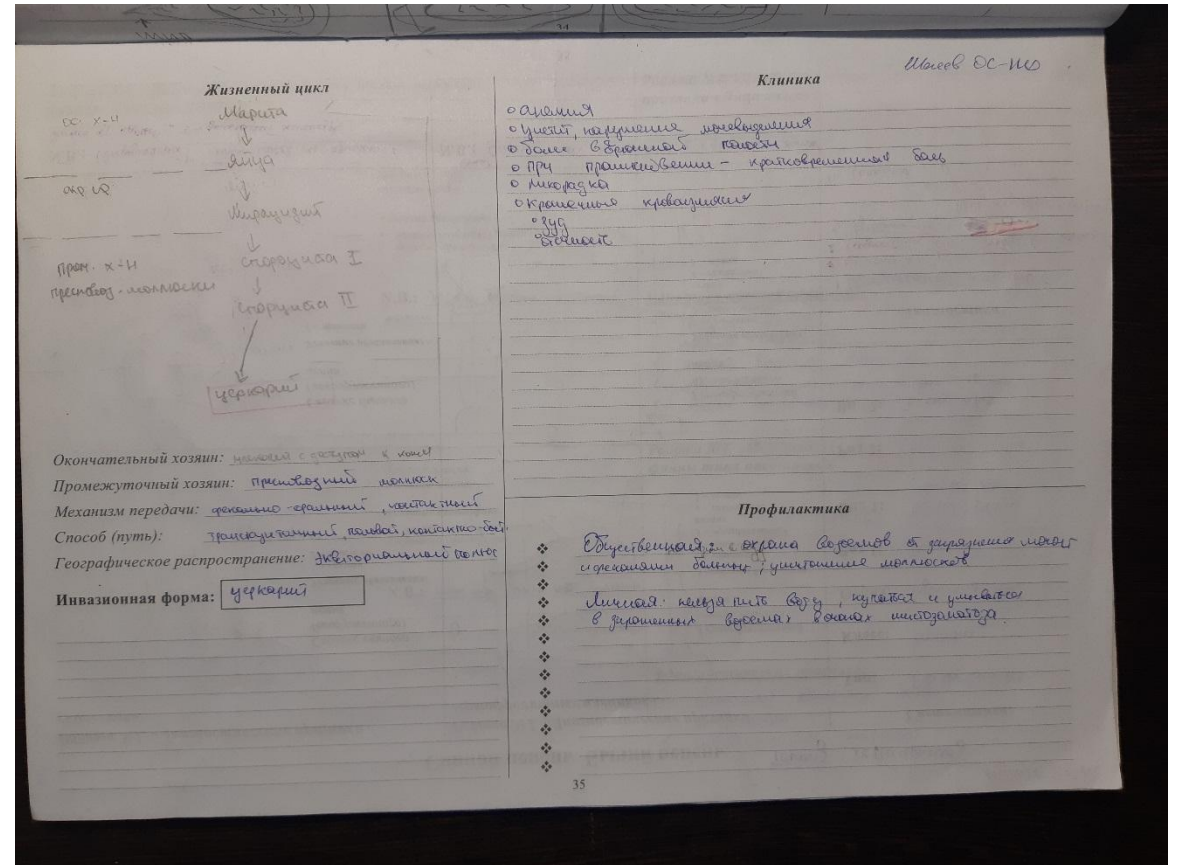 Жизненный цикл
ос. х-н
Марита
Яйца
окр. ср
Мирацидий
Пром. х-н
спороциста I
преснвод. моллюски
Спороциста II
церкарий
Окончательный хозяин: человек с доступом к коже
Промежуточный хозяин: пресноводный моллюск
Механизм передачи: фекально-оральный, контактный
Способ (путь): половой, контактно-быт.
Географическое распространение: Экваториальный
Инвазионная форма: церкарий
ОС-110
Клиника
анемия
нарушения мочевыделения
боли в брюшной полости
При проникновении - кратковременная боль
лихорадка
зуд
Профилактика
Общественная: охрана водоемов от загрязнения мочой
и фекалиями больных, уничтожение моллюсков
Личная: нельзя пить воду, купаться и умываться
в водоемах в очагах шистозоматоза.
35